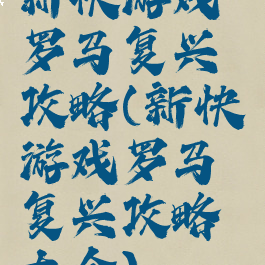 新快游戏
罗马复兴
攻略(新快
游戏罗马
复兴攻略
大全)